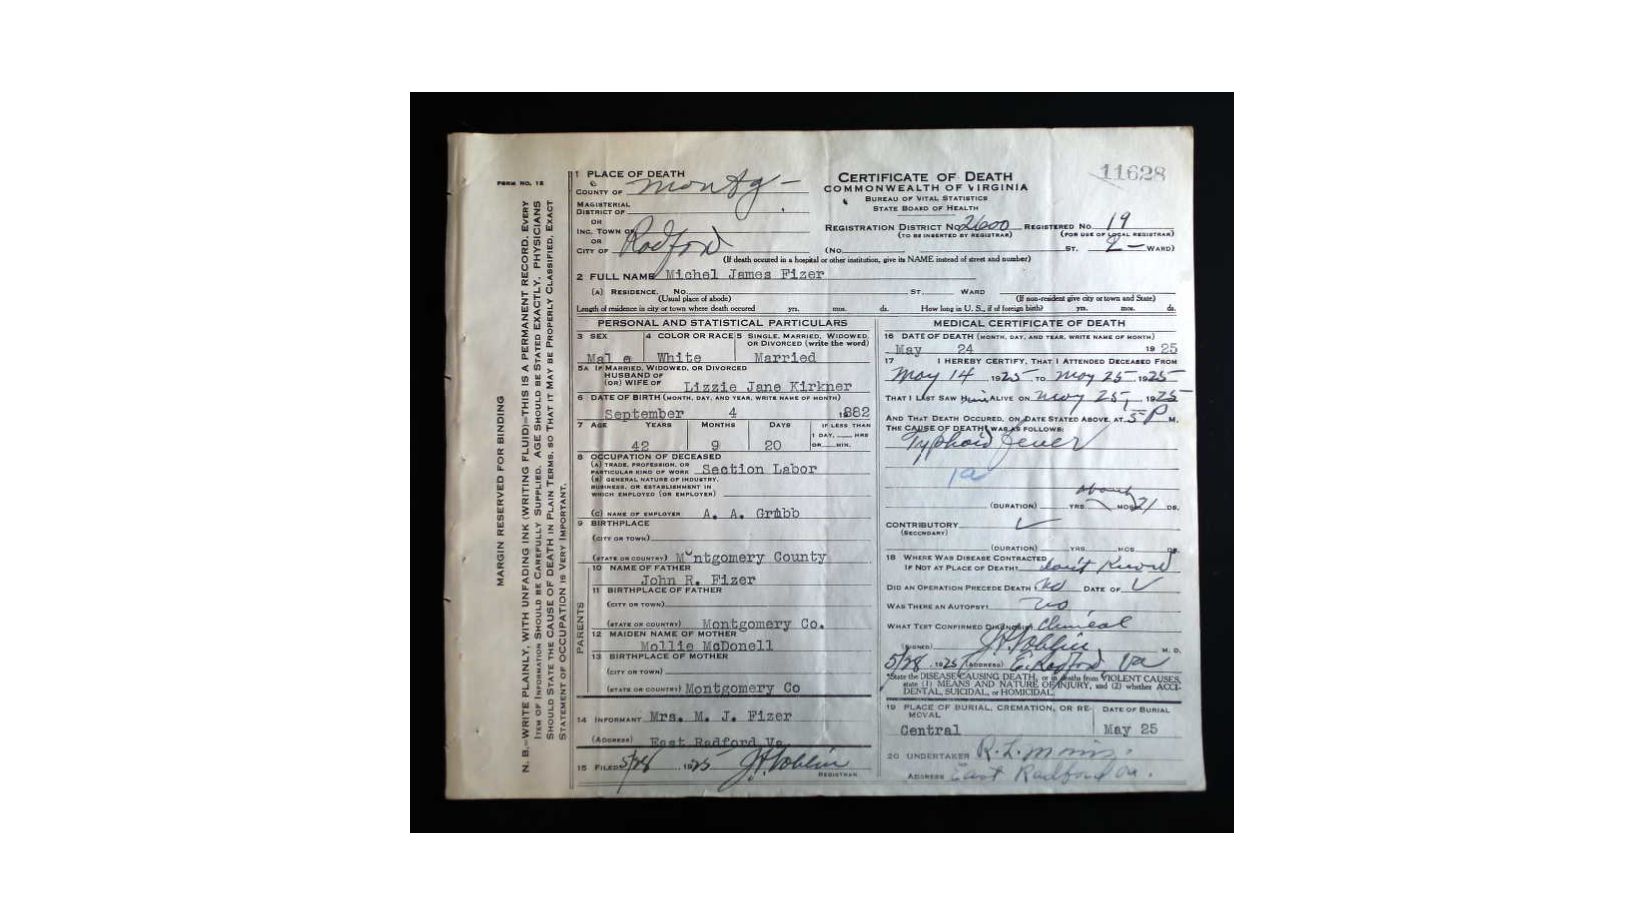 FORM NO. 15
MARGIN RESERVED FOR BINDING
N. B.—WRITE PLAINLY, WITH UNFADING INK (WRITING FLUID)—THIS IS A PERMANENT RECORD. EVERY
ITEM OF INFORMATION SHOULD BE CAREFULLY SUPPLIED. AGE SHOULD BE STATED EXACTLY. PHYSICIANS
SHOULD STATE THE CAUSE OF DEATH IN PLAIN TERMS, SO THAT IT MAY BE PROPERLY CLASSIFIED. EXACT
STATEMENT OF OCCUPATION IS VERY IMPORTANT.
11628
1 PLACE OF DEATH
COUNTY OF Montg-
MAGISTERIAL
DISTRICT OF
OR
INC. TOWN OF
OR
CITY OF Radford
CERTIFICATE OF DEATH
COMMONWEALTH OF VIRGINIA
BUREAU OF VITAL STATISTICS
STATE BOARD OF HEALTH
REGISTRATION DISTRICT No. 2600 REGISTERED No. 19
(TO BE INSERTED BY REGISTRAR) (FOR USE OF LOCAL REGISTRAR)
(No. ST. 2- WARD)
(If death occured in a hospital or other institution, give its NAME instead of street and number)
2 FULL NAME Michel James Fizer
(A) RESIDENCE. No. ST. WARD
(Usual place of abode) (If non-resident give city or town and State)
Length of residence in city or town where death occured yrs. mos. ds. How long in U. S., if of foreign birth? yrs. mos. ds.
PERSONAL AND STATISTICAL PARTICULARS
3 SEX 4 COLOR OR RACE 5 SINGLE, MARRIED, WIDOWED,
OR DIVORCED (write the word)
Male White Married
5A IF MARRIED, WIDOWED, OR DIVORCED
HUSBAND OF
(OR) WIFE OF Lizzie Jane Kirkner
6 DATE OF BIRTH (MONTH, DAY, AND YEAR, WRITE NAME OF MONTH)
September 4 1882
7 AGE YEARS MONTHS DAYS IF LESS THAN
1 DAY, HRS
OR MIN.
42 9 20
8 OCCUPATION OF DECEASED
(A) TRADE, PROFESSION, OR
PARTICULAR KIND OF WORK Section Labor
(B) GENERAL NATURE OF INDUSTRY,
BUSINESS, OR ESTABLISHMENT IN
WHICH EMPLOYED (OR EMPLOYER)
(C) NAME OF EMPLOYER A. A. Grubb
9 BIRTHPLACE
(CITY OR TOWN)
(STATE OR COUNTRY) Montgomery County
PARENTS
10 NAME OF FATHER
John R. Fizer
11 BIRTHPLACE OF FATHER
(CITY OR TOWN)
(STATE OR COUNTRY) Montgomery Co.
12 MAIDEN NAME OF MOTHER
Mollie McDonell
13 BIRTHPLACE OF MOTHER
(CITY OR TOWN)
(STATE OR COUNTRY) Montgomery Co
14 INFORMANT Mrs. M. J. Fizer
(ADDRESS) East Radford Va
15 FILED 5/28 1925
REGISTRAR
MEDICAL CERTIFICATE OF DEATH
16 DATE OF DEATH (MONTH, DAY, AND YEAR, WRITE NAME OF MONTH)
May 24 1925
17 I HEREBY CERTIFY, THAT I ATTENDED DECEASED FROM
May 14 1925 TO May 25 1925
THAT I LAST SAW him ALIVE ON May 25, 1925
AND THAT DEATH OCCURED, ON DATE STATED ABOVE, AT 5 P M.
THE CAUSE OF DEATH WAS AS FOLLOWS:
Typhoid Fever
1a
about
(DURATION) YRS MOS 21 DS.
CONTRIBUTORY
(SECONDARY)
(DURATION) YRS. MOS DS.
18 WHERE WAS DISEASE CONTRACTED
IF NOT AT PLACE OF DEATH? don't know
DID AN OPERATION PRECEDE DEATH? no DATE OF
WAS THERE AN AUTOPSY? no
WHAT TEST CONFIRMED DIAGNOSIS? Clinical
(SIGNED) M. D.
5/28, 1925 (ADDRESS) E. Radford Va
*State the DISEASE CAUSING DEATH, or in deaths from VIOLENT CAUSES,
state (1) MEANS AND NATURE OF INJURY, and (2) whether ACCI-
DENTAL, SUICIDAL, or HOMICIDAL.
19 PLACE OF BURIAL, CREMATION, OR RE-
MOVAL DATE OF BURIAL
Central May 25
20 UNDERTAKER R. L. Morris
ADDRESS East Radford Va.